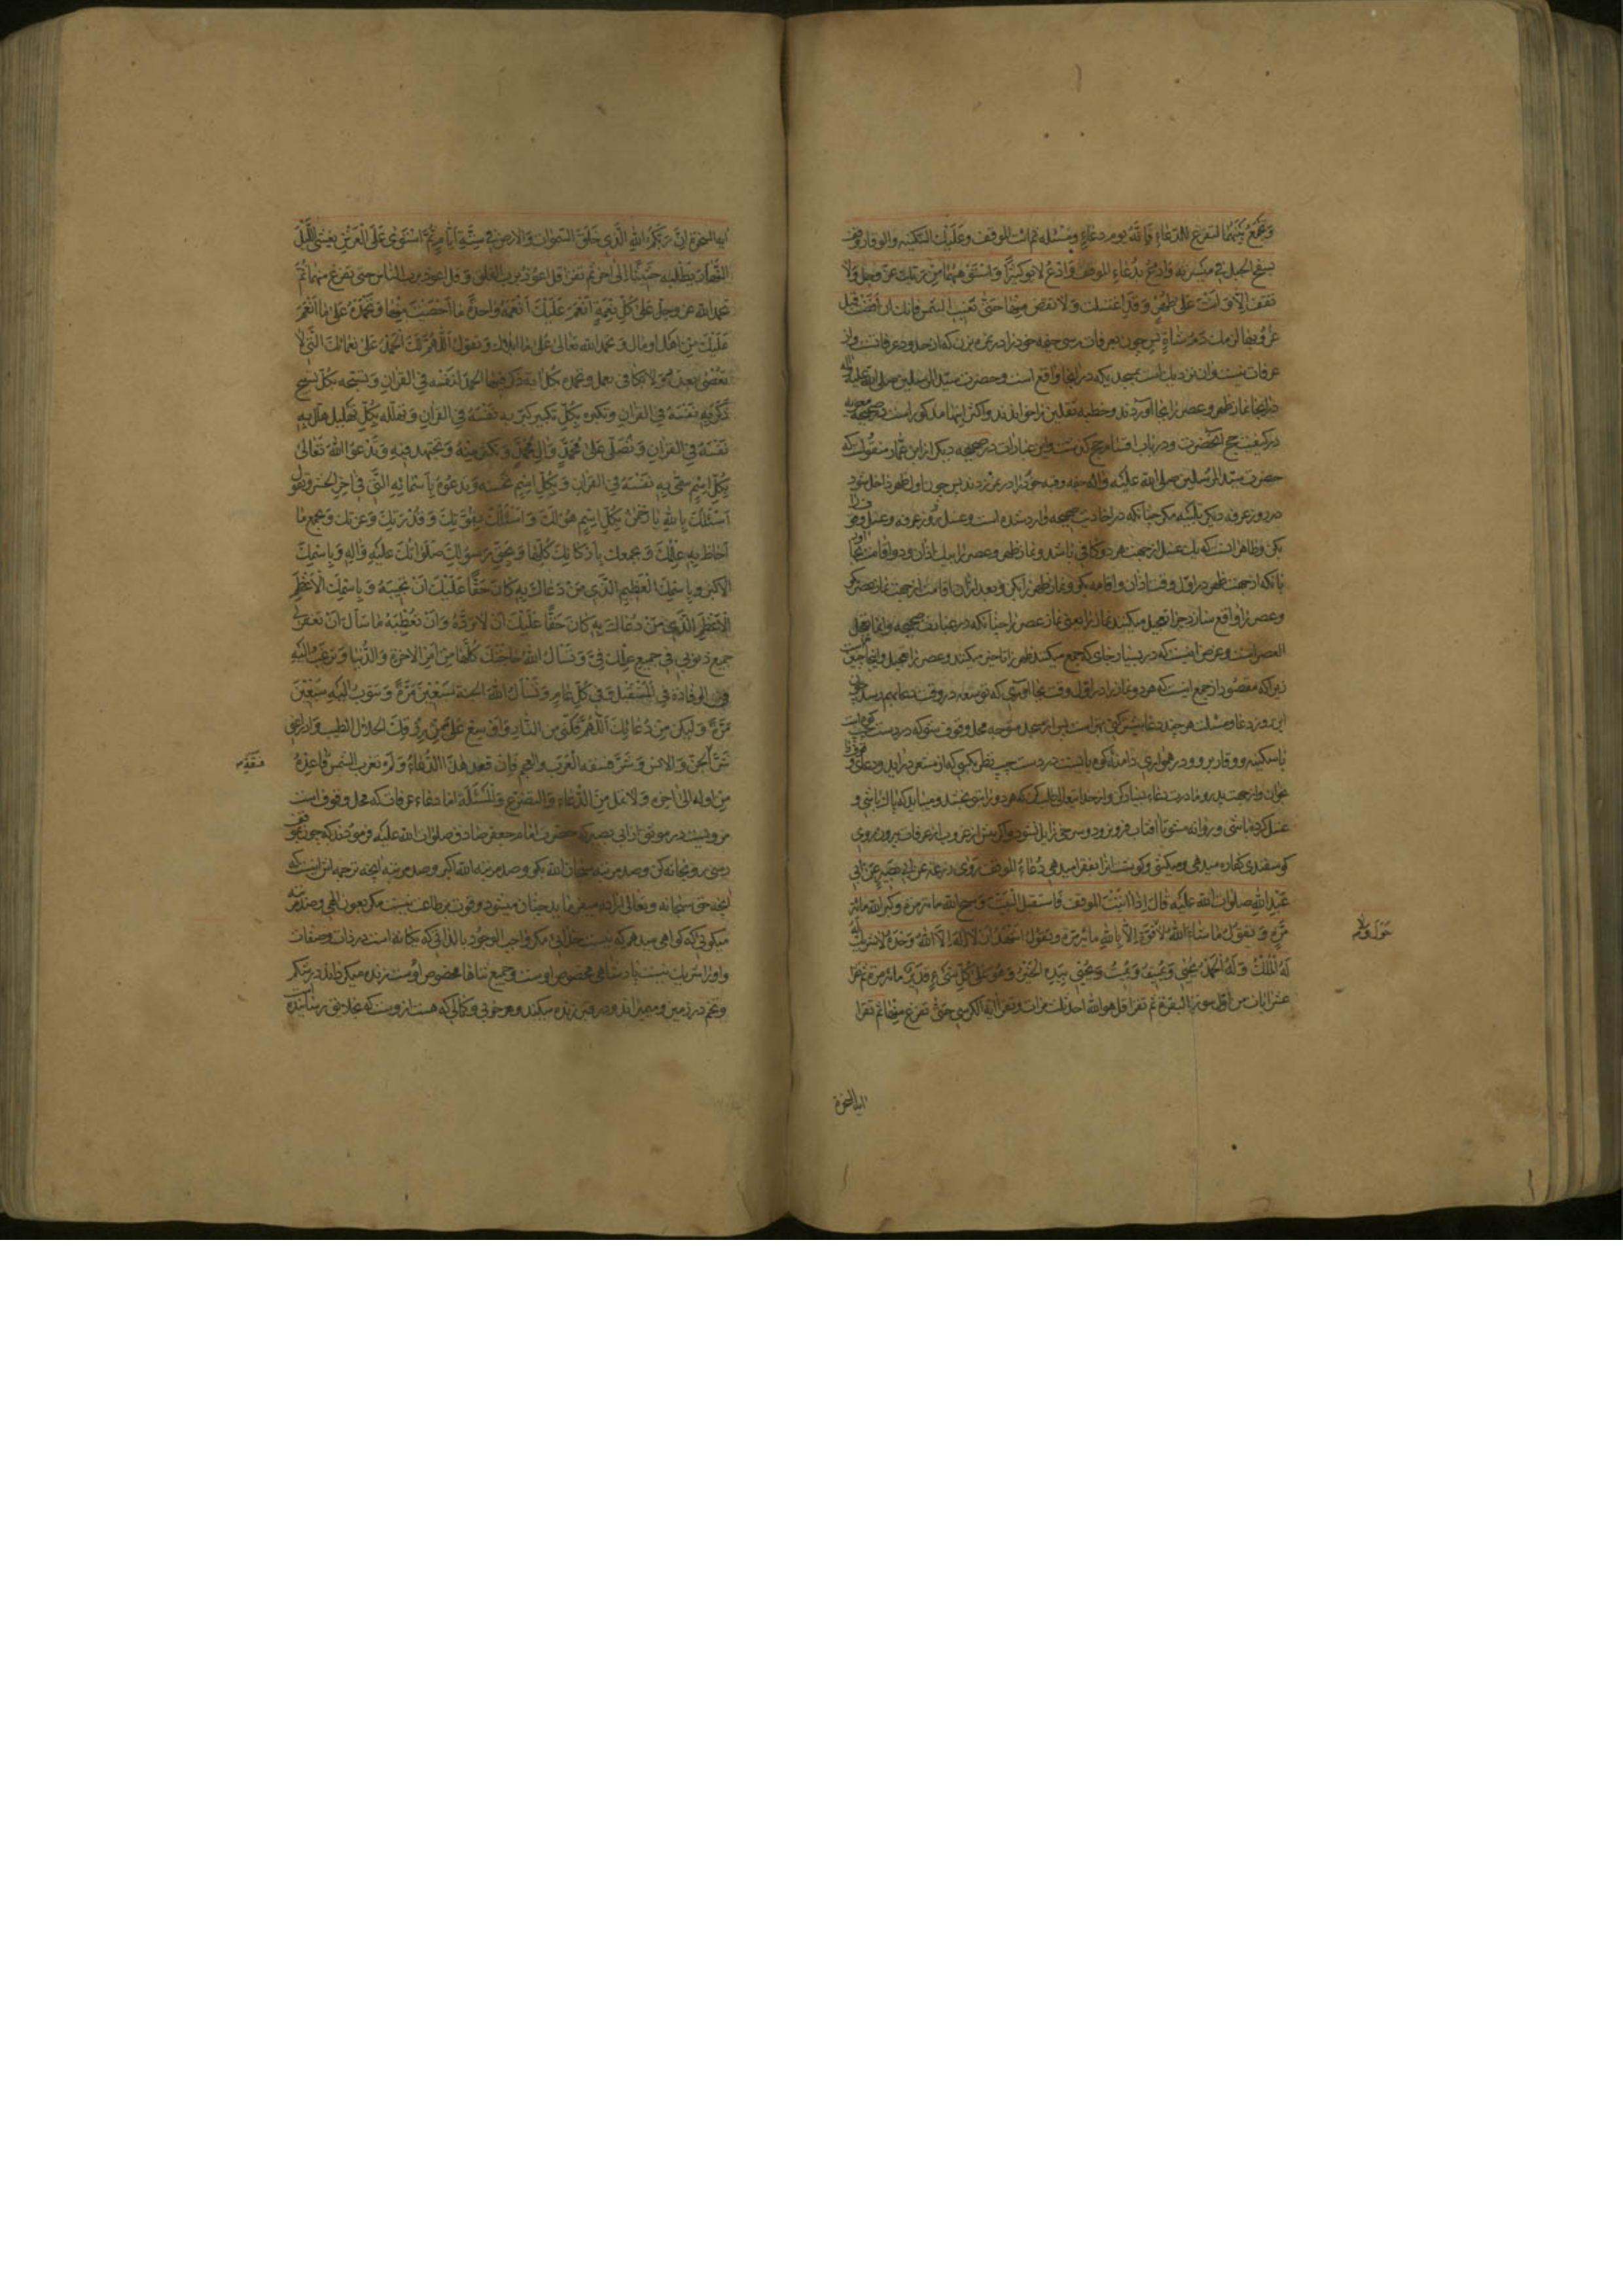 وَتَجْمَعُ بَيْنَهُمَا لتفرغ للدّعاءِ فَاِنَّهُ يوم دعاءٍ ومسئله ثم ائت الموقف وعَلَيْك السّكينه والوقار وقف
بسفح الجبل فى ميسرته وَادعُ بدُعَاءِ الموقف وَادْعُ لابويك كثيرًا وَاسْتَوْهِبْهُمَا مِنْ رَبِّك عزّ وجلّ وَلا
تقف اِلّا وَاَنْتَ عَلى طُهْرٍ وَقَدِ اغتسلت وَلا تفض مِنْهَا حَتّى تَغيب الشمس فانك ان افضت قبل
غُرُوبها لزمك دَمُ شاةٍ پس چون بعرفات رسى خيمه خود را در نمره بزن كه از حدود عرفاتست و از
عرفات نيست و ان نزديك است بمسجديكه در انجا واقع است وحضرت سيّد المرسلين صلى الله عليه واله
در انجا نماز ظهر وعصر را بجا آوردند وخطبه را خواندند واكثر اينها مذكور است در صحيحه معويه
در كيفيت حج آنحضرت ودر باب اقسام حج كذشت واين عبارات در صحيحه ديكر از ابن عمار منقولست كه
حضرت سيّد المرسلين صلى الله عليه واله خيمه وقبه خود را در نمره زدند پس چون اول ظهر داخل شود
در روز عرفه تلبيه مكن چنانكه در احاديث صحيحه وارد شده است وغسل روز عرفه وغسل وقوف را
بكن وظاهر انست كه يك غسل از جهت هر دو كافى باشد ونماز ظهر وعصر را بيك اذان ودو اقامت بجا اور
بانكه از جهت ظهر در اوّل وقت اذان واقامه بكو ونماز ظهر را بكن وبعد از ان اقامت از جهت نماز عصر بكو
وعصر را واقع ساز زيرا تعجيل ميكنند نماز را يعنى نماز عصر را چنانكه در عبارت صحيحه وانما تعجل
العصر است وغرض اينست كه در بسيار جاى كه جمع ميكنند ظهر را تاخير ميكنند وعصر را تعجيل واينجا چنين نيست
زيرا كه مقصود از جمع اينست كه هر دو نماز را در اول وقت بجا آورى كه توسعه در وقت دعا بهم رسد چون
اين روز دعا ومسئلت هر چند دعا بيشتر كنى بهتر است پس از مسجد متوجه محل وقوف شو كه در دست چپ كوه است
باسكينه ووقار برو ودر هموارى دامنه كوه بايست در دست چپ نظر بكسى كه از مشعر درايد ودعاى موقف را
بخوان واز جهت پدر ومادرت دعاء بسيار كن واز خدا يتعالى طلب كن كه هر دو را بتو بخشد وميبايد كه پاك باشى و
غسل كرده باشى وروانه مشو تا افتاب فرو رود وسرخى زايل شود واكر پيش از غروب از عرفات بيرون روى
كوسفندى كفاره ميدهى وميكشى وكوشت انرا بفقرا ميدهى دُعاءُ الموقف رَوى زرعه عن ابى بَصيرٍ عَنْ اَبى
عَبْدِ اللهِ صلوات الله عليه قَالَ اِذَا اَتَيْتَ الموقف فَاستقبل الْبَيْتَ وَسبّح الله مائة مرّة وكبّر الله مائة
مَرّةٍ وَتقول مَا شَاءَ اللهُ لاقُوَّةَ اِلّا بِاللهِ مائة مَرّةٍ وتقول اَشْهَدُ اَن لا اِلهَ اِلّا اللهُ وَحْدَهُ لا شريك لَهُ
لَهُ الْمُلْكُ وَلَهُ الْحَمْدُ يُحْيى وَيُميتُ وَيُميتُ وَيُحْيى بِيَدِهِ الْخَيْرُ وَهُوَ عَلى كُلِّ شَىْءٍ قَدِيرٌ مائة مرّة ثم تقرا
عشر ايات من اوّل سورة البقرة ثم تقرا قل هو الله احد ثلث مرات وتقرا اية الكرسى حَتّى تفرغ مِنْهَا ثم تقرا
اية السخرة
اية السخرة اِنَّ رَبَّكُمُ اللهُ الَّذى خَلَقَ السَّموات وَالارض فى سِتَّةِ اَيّامٍ ثُمَّ اسْتَوى عَلَى الْعَرْشِ يغشى اللَّيْلَ
النَّهار يَطْلُبُهُ حَثيثًا الى اخره ثم تقرا قل اعُوذ بربِّ الفلق وقل اعوذ برب الناس حتى تفرغ منهما ثُمّ
تحمد الله عز وجلّ عَلى كُلِّ نِعْمَةٍ اَنْعَمَ عَلَيْكَ وَتَذْكُرُ اَنْعُمَهُ وَاحِدَةً وَاحِدَةً مَا اَحْصَيْتَ مِنْهَا وَتَحْمَدُهُ عَلى مَا اَنْعَمَ
عَلَيْكَ مِنْ اَهْلٍ او مالٍ وتحمد الله تعالى عَلى مَا اَبْلاكَ وَتقول اَللّهُمَّ لَكَ الْحَمْدُ عَلى نعمائك الَّتى لا
تُحْصى بِعَدَدٍ وَلا تكافى بعمل وتحمده بِكُلِّ اية ذكر فيها الحمد لنفسه فِى القران وَتسبّحه بِكُلِّ تسبيح
ذَكَرَ بِهِ نَفْسَهُ فِى القرانِ وتكبره بِكُلِّ تكبير كبّر بِهِ نَفْسَهُ فِى القرانِ وَتهلّله بِكُلِّ تَهليل هلّل بِهِ
نَفْسَهُ فِى القرانِ وَتُصَلّى عَلى مُحَمَّدٍ وَالِ مُحَمَّدٍ وَتكثر مِنْهُ وَتجتهد فيهِ وَتَدْعُو اللهَ تَعَالى
بِكُلِّ اِسْمٍ سَمّى بِهِ نَفْسَهُ فِى القرانِ وَبِكُلِّ اِسْمٍ تحسنه وَتَدْعُوهُ بِاَسْمائِهِ الَّتى فى اخِرِ الحشر وَتقول
اَسْئَلُكَ يا اللهُ يا رَحْمنُ بِكُلِّ اسْمٍ هُوَ لَكَ وَاَسْئَلُكَ بِقُوَّتِكَ وَقُدْرَتِكَ وَعِزّتِكَ وَبِجَميعِ مَا
اَحَاطَ بِهِ عِلْمُكَ وَبجمعِك وَاَرْكَانِكَ كُلِّهَا وَبِحَقِّ رَسُولِكَ صَلَوَاتُكَ عَلَيْهِ وَالِهِ وَبِاسْمِكَ
الاكبر وَبِاسْمِكَ الْعَظيمِ الَّذى مَنْ دَعَاكَ بِهِ كَانَ حَقًّا عَلَيْكَ اَنْ تُجيبَهُ وَبِاسْمِكَ الاَعْظَمِ
الاَعْظَمِ الَّذى مَنْ دَعَاكَ بِهِ كَانَ حَقًّا عَلَيْكَ اَنْ لا تردّهُ وَاَنْ تُعْطِيَهُ مَا سَاَلَ اَنْ تَغفر لى
جميع ذنوبى فى جميع عِلْمِكَ فِىَّ وَتَسْاَلُ اللهَ حَاجَتَكَ كُلَّهَا مِنْ اَمْرِ الاخرة وَالدُّنيا وَترغب اِلَيْهِ
فى الوفادة فِى الْمُسْتَقْبَلِ وفى كُلِّ عَامٍ وَتَسْاَلُ اللهَ الجنة سَبْعينَ مَرَّةً وَتتوب اِلَيْهِ سَبْعينَ
مَرَّةً وَليكن مِنْ دُعَائِكَ اَللّهُمَّ فُكَّنى مِنَ النّارِ وَاَوْسِعْ عَلَىَّ مِنْ رِزْقِكَ الحلال الطيب وَادْرَأْ عَنّى
شَرَّ الْجِنِّ وَالانس وَشَرَّ فسقه العَرَبِ والعجم فَاِنْ نفد هذَا الدُّعَاءُ وَلَمْ تغرب الشمس فَاَعِدْهُ
مِنْ اوله الى اخره وَلا تمل مِنَ الدُّعَاءِ وَالتضرّعِ وَالْمَسْئَلَةِ اما دعاء عرفات كه محل وقوف است
مرويست در موثق از ابى بصير كه حضرت امام جعفر صادق صلوات الله عليه فرمودند كه چون بموقف
رسى رو بخانه كن وصد مرتبه سبحان الله بكو وصد مرتبه الله اكبر وصد مرتبه انچه ترجمه اش اينست كه
انچه حق سبحانه وتعالى اراده ميفرمايد چنان ميشود وقوت بر طاعت نيست مكر بعون الهى وصد مرتبه
ميكوئى كه كواهى ميدهم كه نيست خدائى مكر واجب الوجود بالذاتى كه يكانه است در ذات وصفات
واو را شريك نيست پادشاهى مخصوص اوست وجميع ثناها مخصوص اوست زنده ميكرداند
وتخم در زمين وميميراند ودر قبر زنده ميكند وهر خوبى وكمالى كه هست از وست كه بخلايق رسانيده